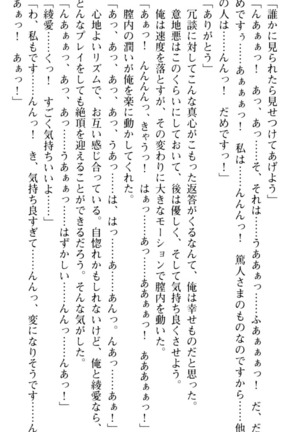 「誰かに見られたら見せつけてあげよう」
「んぁぁぁっ！　あっ、あっ……そ、それは……うああぁっ……ふあぁぁぁっ！　だ、だ
めですぅ……ぁあぁぁぁっ！　私は……んんんっ！　篤人さまのものなのですから……他
の人は……んんんっ！　だめですっ！」
「ありがとう」
冗談に対してこんな真心がこもった返答がくるなんて、俺は幸せものだと思った。
意地悪はこのくらいにしておいて、後は優しく、そして気持ち良くさせよう。
俺は速度を落とすが、その変わりに大きなモーションで膣内を動いた。
「あぁっ！　んんんんっ、きゃうっ！　はぁっ……あっ、うあぁっ！　あああぁぁっ！」
膣内の潤いが俺を楽に動かしてくれた。
「あっ、あっ……あっ、あっ、うあっ……は、はっ……あっ……あんっ。んっ……あぁ！」
心地よいリズムで、お互い感じ合っている。自惚れかもしれないけど、俺と綾愛なら、
どんなプレイをしても絶頂を迎えることができるだろう。そんな気がした。
「んあぁぁっ、あっ、あっ……うあぁぁっ……はずかしい……んんっ……んあっ！」
「綾愛……くっ！　すごく気持ちいいよ……」
「わ、私もです……んんっ！　き、気持ち良すぎて……んんっ、変になりそうです……ん
あぁっ！　あぁっ！」